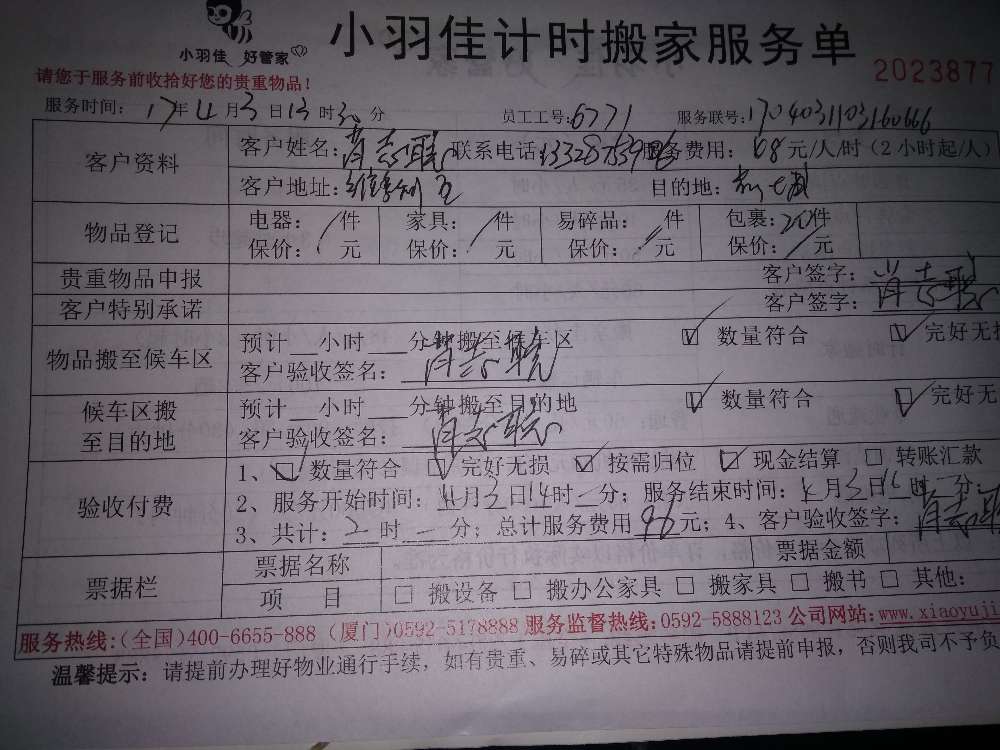 小羽佳 好管家
小羽佳计时搬家服务单
2023877
请您于服务前收拾好您的贵重物品！
服务时间：17年4月3日13时30分 员工工号：6771 服务联号：1704031103160666
客户资料 客户姓名：肖志聪 联系电话：服务费用：68元/人/时（2小时起/人）
客户地址： 目的地：
物品登记 电器：/件 家具：/件 易碎品：/件 包裹：20件
保价：/元 保价：/元 保价：/元 保价：/元
贵重物品申报 客户签字：肖志聪
客户特别承诺 客户签字：肖志聪
物品搬至候车区 预计__小时__分钟搬至候车区 ☑ 数量符合 ☑ 完好无损
客户验收签名：肖志聪
候车区搬至目的地 预计__小时__分钟搬至目的地 ☑ 数量符合 ☑ 完好无
客户验收签名：肖志聪
验收付费 1、☑ 数量符合 ☑ 完好无损 ☑ 按需归位 ☑ 现金结算 □ 转账汇款
2、服务开始时间：4月3日14时一分；服务结束时间：4月3日16时一分；
3、共计：二时一分；总计服务费用 元；4、客户验收签字：肖志聪
票据栏 票据名称 票据金额
项 目 □ 搬设备 □ 搬办公家具 □ 搬家具 □ 搬书 □ 其他：
服务热线：(全国)400-6655-888 (厦门)0592-5178888 服务监督热线：0592-5888123 公司网站：www.xiaoyuji
温馨提示：请提前办理好物业通行手续，如有贵重、易碎或其它特殊物品请提前申报，否则我司不予负